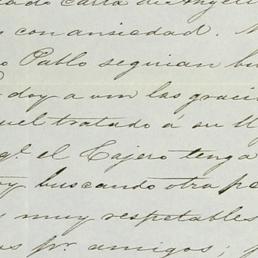 carta de
con ansiedad.
Pablo seguian
doy a vm las graci
tratado á su
el Cajero tenga
buscando otra
muy respetables
pr. amigos;